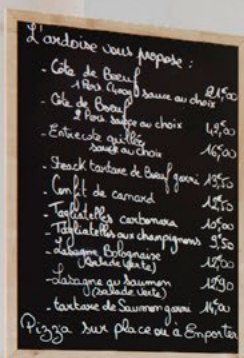 L'ardoise vous propose :
- Côte de Boeuf
1 Pers (400g) sauce au choix 21,00
- Côte de Boeuf
2 Pers sauce au choix 42,00
- Entrecôte grillée
sauce au choix 16,00
- Steack tartare de Boeuf garni 13,50
- Confit de canard 12,50
- Tagliatelles carbonara 10,00
- Tagliatelles aux champignons 9,50
- Lasagne Bolognaise
(salade verte) 12,00
- Lasagne au saumon
(salade verte) 12,90
- tartare de Saumon garni 14,00
Pizza sur place ou à Emporter